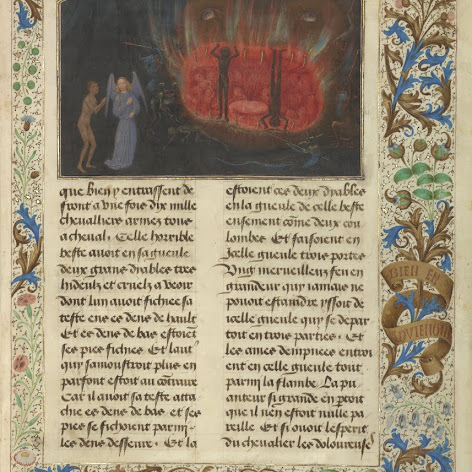 que bien y entraissent de
front a une fois dix mille
chevaliers armez tous
a cheval. Celle horrible
beste avoit en sa gueule
deux grans dyables tres
hideulx et cruelz a veoir
dont l'un avoit fichee sa
teste ens es dens de hault
Et es dens de bas estoient
ses pies fichies. Et l'aut'
qui samonstroit plus en
parfont estoit au contraire
Car il avoit sa teste atta
chie es dens de bas. et ses
pies se fichoient parmi
les dens desseure. Et la
estoient ces deux dyables
en la gueule de celle beste
ensement come deux cou
lombes. Et faisoient en
icelle gueule trois portes
Ung merveilleux feu en
grandeur qui iamais ne
pouoit estaindre yssoit de
icelle gueule qui se depar
toit en trois parties. Et
les ames dempnees entroi
ent en celle gueule tout
parmi la flambe. La pu
anteur si grande en partoit
que il n'en estoit nulle pa
reille. Et si avoit lesperit
du chevalier les doloureuse
BIEN EN
AVIENGNE